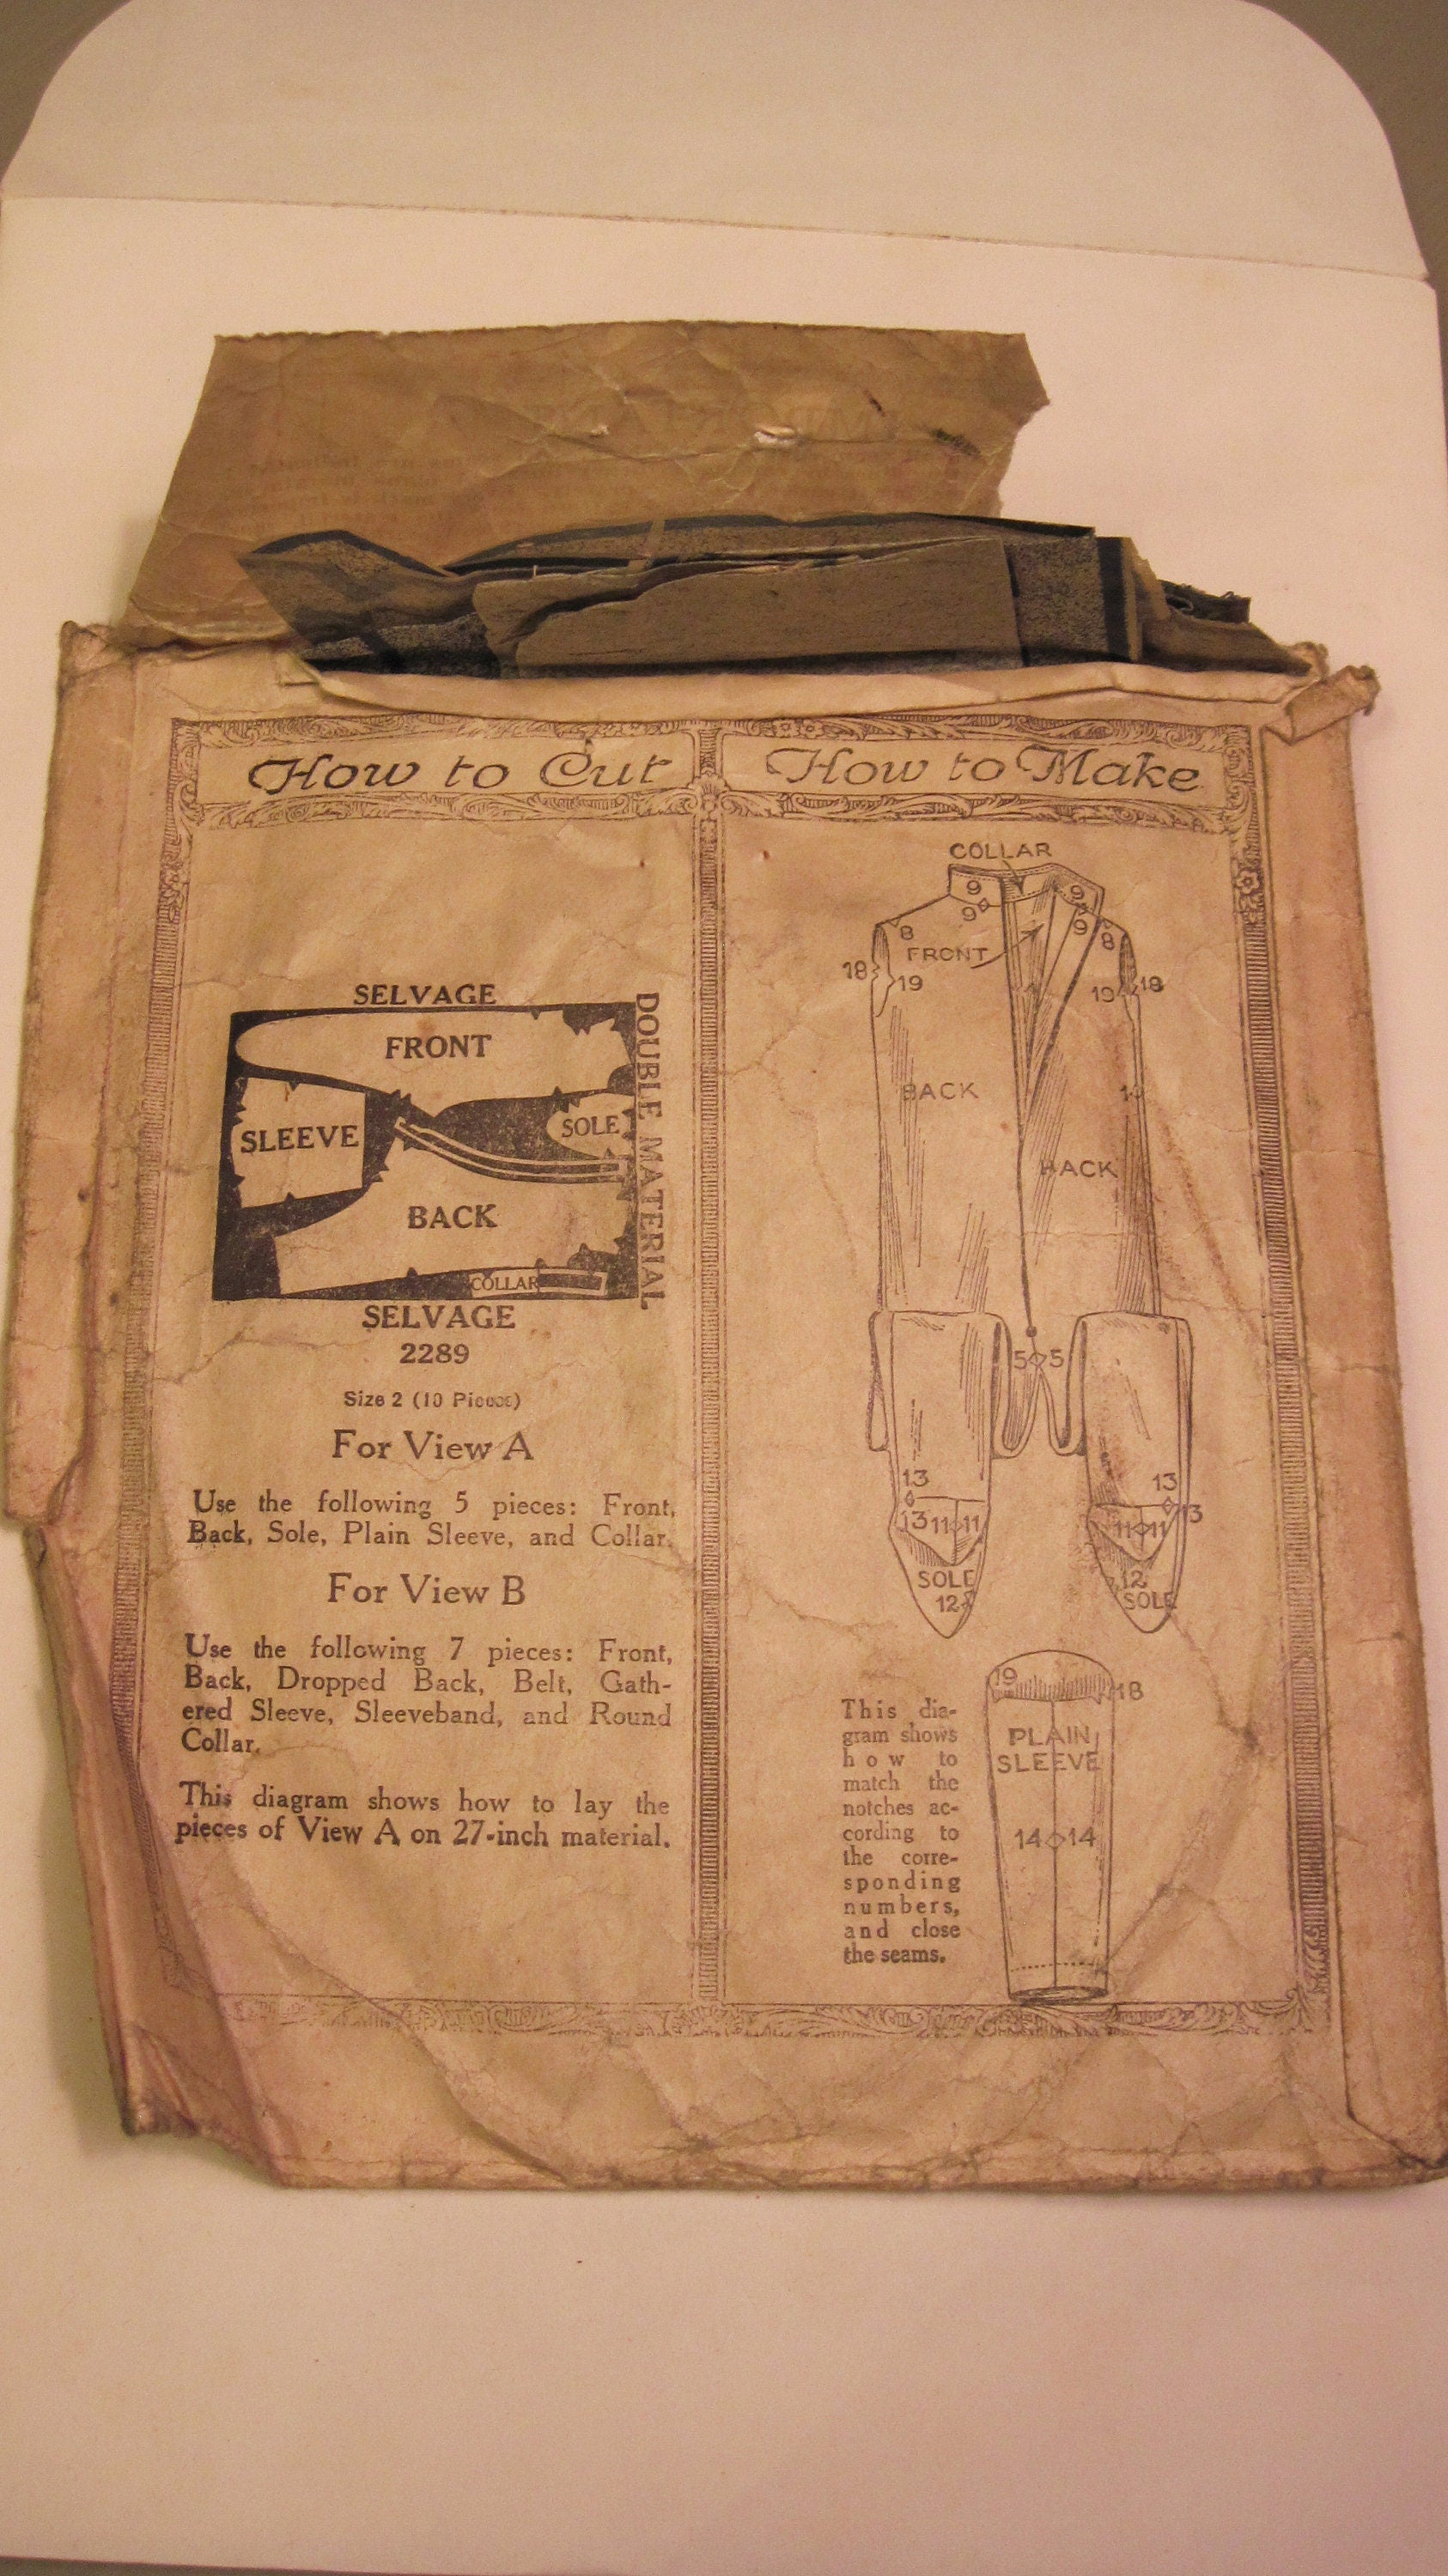 How to Cut
SELVAGE
FRONT
SLEEVE
SOLE
BACK
COLLAR
DOUBLE MATERIAL
SELVAGE
2289
Size 2 (10 Pieces)
For View A
Use the following 5 pieces: Front,
Back, Sole, Plain Sleeve, and Collar.
For View B
Use the following 7 pieces: Front,
Back, Dropped Back, Belt, Gath-
ered Sleeve, Sleeveband, and Round
Collar.
This diagram shows how to lay the
pieces of View A on 27-inch material.
How to Make
COLLAR
9 9
9 9
8 FRONT 8
18 19 19 18
BACK
BACK
5 5
13 13
13 11 11 11 11 13
SOLE 12
12 SOLE
19 18
PLAIN
SLEEVE
14 14
This dia-
gram shows
how to
match the
notches ac-
cording to
the corre-
sponding
numbers,
and close
the seams.